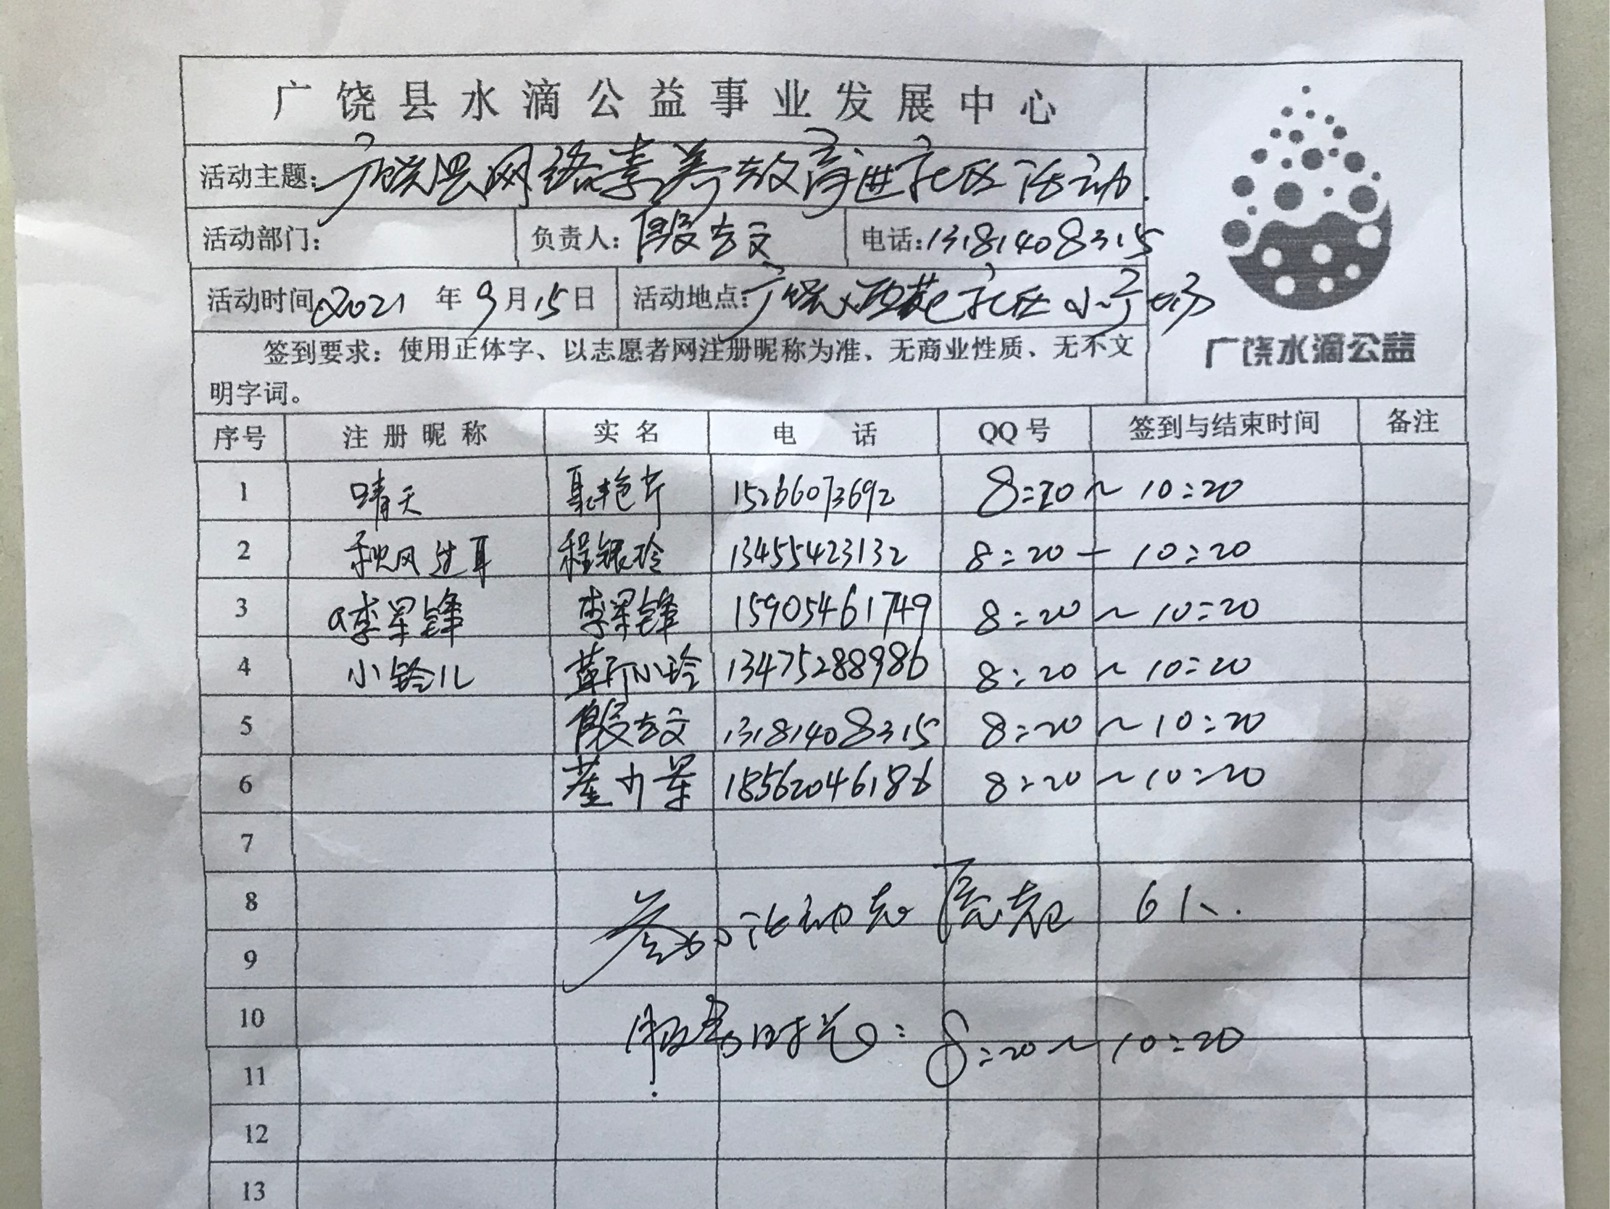 广饶县水滴公益事业发展中心
活动主题：广饶县网络素养教育进社区活动.
活动部门： 负责人：殷方文 电话：13181408315
活动时间 2021 年 9 月 15 日 活动地点：广饶 西苑社区小广场
广饶水滴公益
签到要求：使用正体字、以志愿者网注册昵称为准、无商业性质、无不文
明字词。
序号 注册昵称 实名 电 话 QQ号 签到与结束时间 备注
1 晴天 聂艳芹 15266073692 8:20~10:20
2 秋风过耳 程银玲 13455423132 8:20-10:20
3 a李军锋 李军锋 15905461749 8:20~10:20
4 小铃儿 小玲 13475288986 8:20~10:20
5 殷方文 13181408315 8:20~10:20
6 董少军 18562046186 8:20~10:20
7
8 参加活动志愿者 6人.
9
10 服务时长：8:20~10:20
11
12
13